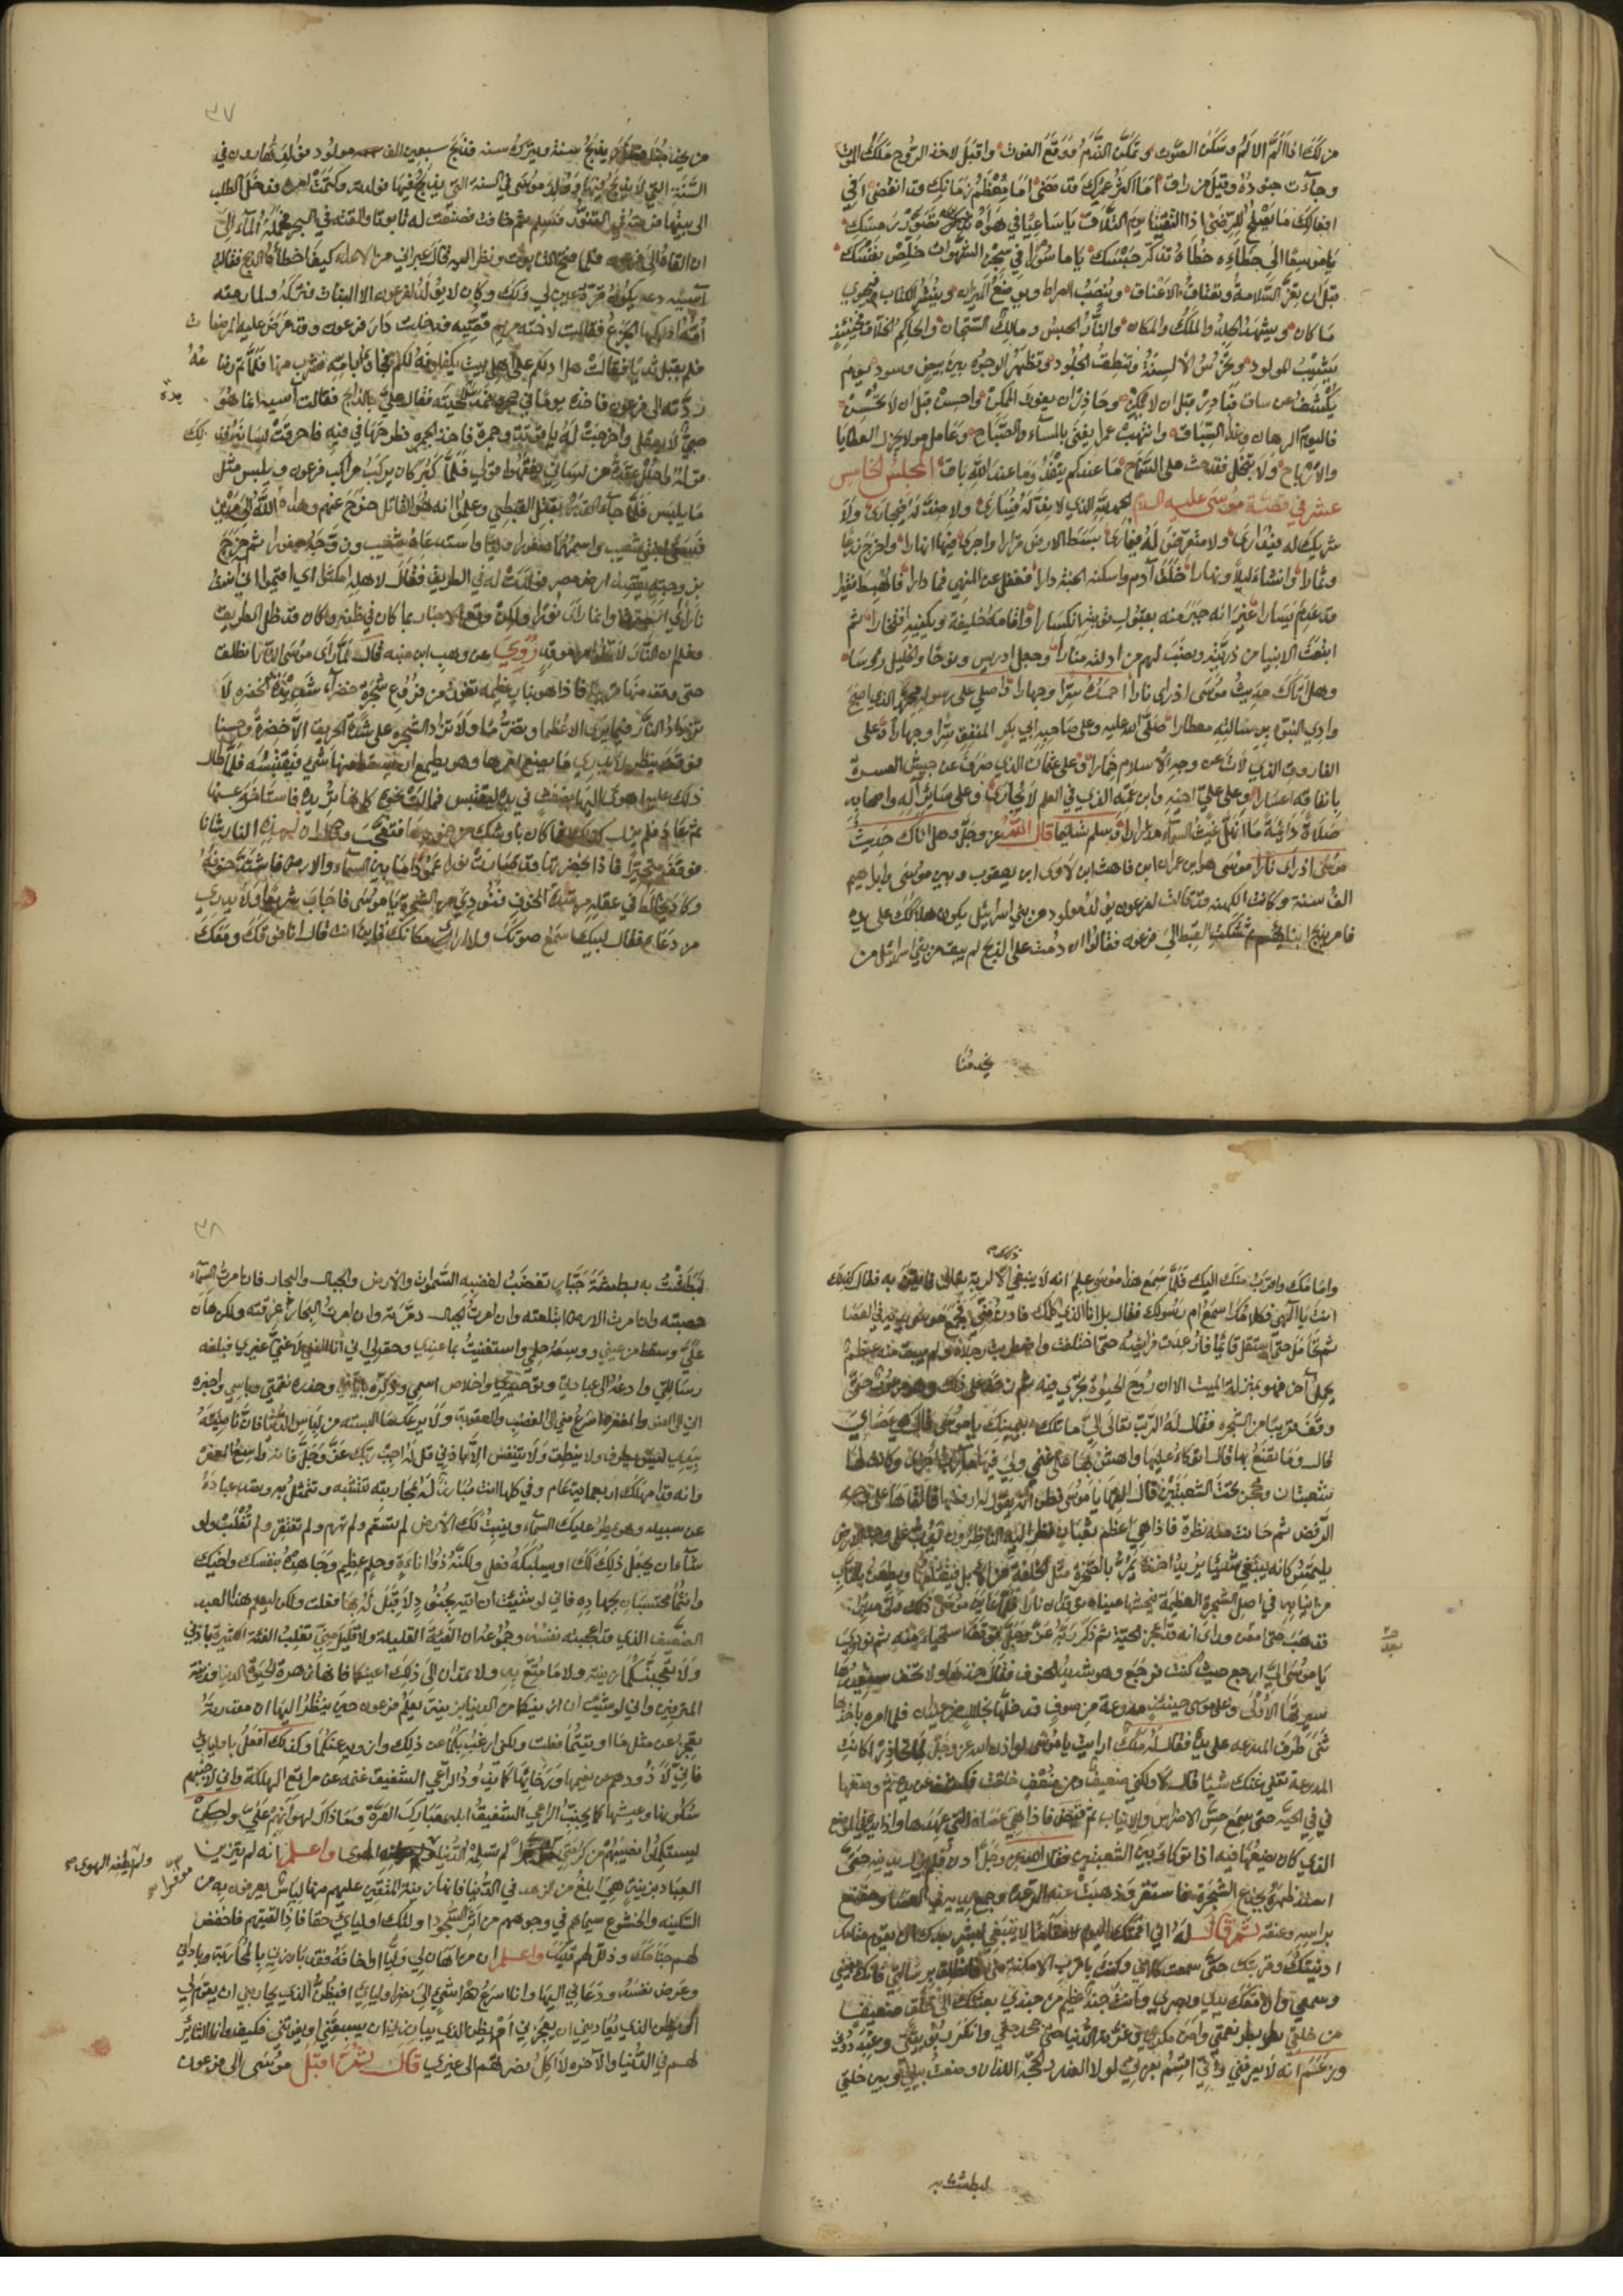 من لك اذا الم الالم وسكن الصوت وتمكن الندم ووقع الفوت واقبل لاخذ الروح ملك الموت
وجاءت جنوده وقيل من راق اما اكثر عمرك قد مضى اما معظم زمانك قد انقضى افي
افعالك ما يصلح للرضى اذا التقينا يوم التلاق يا ساعيا في هواه تصور رمسك
يا موسعا الى خطاءه خطاه تذكر حبسك يا ماسورا في سجن الشهوات خلص نفسك
قبل ان تعز السلامة وتعتاق الاعناق وينصب الصراط ويوضع الميزان وينشر الكتاب فيحوي
ما كان ويشهد الجلد والملك والمكان والنار الحبس ومالك السجان والحاكم الخلاق فحينئذ
يشيب المولود وتخرس الالسنة وتنطق الجلود وتظهر الوجوه بين بيض وسود يوم
يكشف عن ساق فبادر قبل ان لا يمكن وحاذر ان يفوت الممكن واحسن قبل ان لا تحسن
فاليوم الرهان وغدا السباق وانتهب عمرا يفنى بالمساء والصباح وعامل مولا يجزل العطايا
والارباح ولا تبخل فقد حث على السماح ما عندكم ينفد وما عند الله باق المجلس الخامس
عشر في قصة موسى عليه السلام الحمد لله الذي لا ند له فيبارى ولا ضد له فيجارى ولا
شريك له فيدارى ولا معترض له فيمارى بسط الارض قرارا واجرى فيها انهارا واخرج زرعا
وثمارا وانشاء ليلا ونهارا خلق آدم واسكنه الجنة دارا فغفل عن النهي فما دارا فاهبط فقيرا
قد عدم يسارا غير انه جبر منه بقبول توبته انكسارا واقامه خليفة ويكفيه افتخارا ثم
ابتعث الانبيا من ذريته ونصب لهم من ادلته منارا وجعل ادريس ونوحا والخليل رؤسا
وهل اتاك حديث موسى اذ راى نارا احمده سرا وجهارا واصلي على رسوله محمد الذي اصبح
وادي النبوة برسالته معطارا صلى الله عليه وعلى صاحبه ابي بكر المنفق سرا وجهارا وعلى
الفاروق الذي لاث عن وجه الاسلام خمارا وعلى عثمان الذي صرف عن جيش العسرة
بانفاقه اعسارا وعلى علي اخيه وابن عمه الذي في العلم لا يجارى وعلى سائر آله واصحابه
صلاة دائمة ما انهل غيث السماء مدرارا وسلم تسليما قال الله عز وجل وهل اتاك حديث
موسى اذ راى نارا موسى هو ابن عمران ابن قاهث ابن لاوى ابن يعقوب وبين موسى وابراهيم
الف سنة وكانت الكهنة قد قالت لفرعون يولد مولود من بني اسرائيل يكون هلاكك على يده
فامر بذبح ابنايهم ثم شكت القبط الى فرعون فقالوا ان دمت على الذبح لم يبق من بني اسرائيل من
يخدمنا
٣٧
من يخدمنا فصار يذبح سنة ويترك سنة فذبح سبعين الف مولود فولد هارون في
السنة التي لا يذبح فيها وولد موسى في السنة التي يذبح فيها فولدته وكتمت امره فدخل الطلب
الى بيتها فرمته في التنور فسلم ثم خافت فصنعت له تابوتا والقته في اليم فحمله الماء الى
ان القاه الى فرعون فلما فتح التابوت ونظر اليه قال عبراني من الاعداء كيف اخطاه الذبح فقالت
آسية دعه يكون قرة عين لي ولك وكان لا يولد لفرعون الا البنات فتركه ولما رمته
امه ادركها الجزع فقالت لاخته مريم قصيه فدخلت دار فرعون وقد عرض عليه المرضعات
فلم يقبل ثديا فقالت هل ادلكم على اهل بيت يكفلونه لكم فجاوا بامه فشرب منها فلما تم رضاعه
ردته الى فرعون فاخذه يوما في حجره فمد يده لحيته فقال علي بالذباح فقالت آسية انما هو
صبي لا يعقل واخرجت له ياقوتا وجمرة فاخذ الجمره فطرحها في فيه فاحرقت لسانه فذلك
قوله واحلل عقدة من لساني يفقهوا قولي فلما كبر كان يركب مراكب فرعون ويلبس مثل
ما يلبس فلما جاء القدر بقتل القبطي وعلموا انه هو القاتل خرج عنهم وهداه الله الى مدين
فسقى لبنتي شعيب واسمهما صفورا وليا واستدعاه شعيب وزوجه صفورا ثم خرج
بزوجته يقصد ارض مصر فولدت له في الطريق فقال لاهله امكثوا اي اقيموا اني آنست
نارا اي ابصرتها وانما راى نورا ولكن وقع الاخبار بما كان في ظنه وكان قد ضل الطريق
فعلم ان النار لا تخلوا من موقد وروي عن وهب ابن منبه قال لما راى موسى النار انطلق
حتى وقف منها قريبا فاذا هو بنار عظيمه تفور من فروع شجرة خضرآء شديدة الخضره لا
تزداد النار فيما يرى الا عظما وتضرما ولا تزداد الشجره على شدة الحريق الا خضرة وحسنا
فوقف ينظر لا يدري ما يصنع امرها وهو يطمع ان يسقط منها شي فيقتبسه فلما طال
ذلك عليه اهوى اليها بضغث في يده ليقتبس فمالت نحوه كانها تريده فاستاخر عنها
ثم عاد فلم يزل كذلك فما كان باوشك من خمودها فتعجب وقال ان لهذه النار شانا
فوقف متحيرا فاذا بخضرتها قد صارت نورا عمودا ما بين السماء والارض فاشتد خوفه
وكاد يخالط في عقله من شدة الخوف فنودي من الشجرة يا موسى فاجاب سريعا ولا يدري
من دعاه فقال لبيك اسمع صوتك ولا ارى مكانك فاين انت قال انا فوقك ومعك
وامامك واقرب منك اليك فلما سمع هذا موسى علم انه لا ينبغي ذلك الا لربه تعالى فايقن به فقال كذلك
انت يا الهي فكلامك اسمع ام رسولك فقال بل انا الذي اكلمك فادن مني فجمع موسى يديه في العصا
ثم تحامل حتى استقل قائما فارعدت فرائصه حتى اختلفت واضطربت رجلاه ولم يبق منه عظم
يحمل آخر فهو بمنزلة الميت الا ان روح الحيوة تجري فيه ثم زحف على ذلك وهو مرعوب حتى
وقف قريبا من الشجره فقال له الرب تعالى وما تلك بيمينك يا موسى قال هي عصاي
قال وما تصنع بها قال اتوكاء عليها واهش بها على غنمي ولي فيها مآرب اخرى وكان لها
شعبتان ومحجن تحت الشعبتين قال القها يا موسى فظن انه يقول له ارفضها فالقاها على وجه
الرفض ثم حانت منه نظرة فاذا هي اعظم ثعبان نظر اليه الناظرون يدب على وجه الارض
يلتمس كانه يبتغي شيئا يريد اخذه يمر بالصخرة مثل الخلفة من الابل فيقتلعها ويطعن بالناب
من انيابه في اصل الشجرة العظيمة فيجثها عيناه توقدان نارا فلما عاين موسى ذلك ولى مدبرا
فذهب حتى امعن وراى انه قد اعجز الحية ثم ذكر ربه عز وجل فوقف استحياء منه ثم نودي
يا موسى الي ارجع حيث كنت فرجع وهو شديد الخوف فقال خذها ولا تخف سنعيدها
سيرتها الاولى وعلى موسى حينئذ مدرعة من صوف قد خلها بخلال من عيدان فلما امره باخذها
ثنى طرف المدرعه على يده فقال له ملك ارايت يا موسى لو اذن الله عز وجل لما تحاذر اكانت
المدرعة تغني عنك شيئا قال لا ولكني ضعيف ومن ضعف خلقت فكشف عن يده ثم وضعها
في في الحية حتى سمع حس الاضراس والانياب ثم قبض فاذا هي عصاه التي عهدها واذا يده في الموضع
الذي كان يضعها فيه اذا توكاء بين الشعبتين فقال الله عز وجل ادن فلم يزل يدنيه حتى
اسند ظهره بجذع الشجرة فاستقر وذهبت عنه الرعدة وجمع يديه في العصا وخضع
براسه وعنقه ثم قال له اني اقمتك اليوم مقاما لا ينبغي لبشر بعدك ان يقوم مقامك
ادنيتك وقربتك حتى سمعت كلامي وكنت باقرب الامكنة مني فانطلق برسالتي فانك بعيني
وسمعي وان معك يدي وبصري وانت جند عظيم من جندي بعثتك الى خلق ضعيف
من خلقي بطر نعمتي وامن مكري وغرته الدنيا حتى جحد حقي وانكر ربوبيتي وعبد دوني
وزعم انه لا يعرفني واني اقسم بعزتي لولا العذر والحجه اللذان وضعت بيني وبين خلقي
لبطشت به
٣٨
لبطشت به بطشة جبار تغضب لغضبه السموات والارض والجبال والبحار فان امرت السماء
حصبته وان امرت الارض ابتلعته وان امرت الجبال دمرته وان امرت البحار غرقته ولكن هان
علي وسقط من عيني ووسعه حلمي واستغنيت بما عندي وحق لي اني انا الغني لا غني غيري فبلغه
رسالتي وادعه الى عبادتي وتوحيدي واخلاص اسمي وذكره بايامي وحذره نقمتي وباسي واخبره
اني الى العفو والمغفرة اسرع مني الى الغضب والعقوبة ولا يرعك ما البسته من لباس الدنيا فان ناصيته
بيدي ليس يطرف ولا ينطق ولا يتنفس الا باذني قل له اجب ربك عز وجل فانه واسع المغفرة
وانه قد امهلك اربعماية عام وفي كلها انت مبارز له بمحاربته تتشبه وتتمثل به وتصد عباده
عن سبيله وهو يمطر عليك السماء وينبت لك الارض لم تسقم ولم تهرم ولم تفتقر ولم تغلب ولو
شآء ان يعجل ذلك لك او يسلبكه فعل ولكنه ذوا اناءة وحلم عظيم وجاهده بنفسك واخيك
وانتما محتسبان بجهاده فاني لو شئت ان آتيه بجنود لا قبل له بها فعلت ولكن ليعلم هذا العبد
الضعيف الذي قد اعجبته نفسه وجموعه ان الفئة القليلة ولا قليل مني تغلب الفئة الكثيرة باذني
ولا تعجبنكما زينته ولا ما متع به ولا تمدان الى ذلك اعينكما فانها زهرة الحيوة الدنيا وزينة
المترفين واني لو شئت ان ازينكما من الدنيا بزينة يعلم فرعون حين ينظر اليها ان مقدرته
تعجز عن مثل ما اوتيتما فعلت ولكني ارغب بكما عن ذلك وازويه عنكما وكذلك افعل باوليايي
فاني لاذودهم عن نعيمها ورخايها كما يذود الراعي الشفيق غنمه عن مراتع الهلكة واني لاجنبهم
سلوتها وعيشها كما يجنب الراعي الشفيق ابله مبارك العرة وما ذاك لهوانهم علي ولكن
ليستكملوا نصيبهم من كرامتي موفرا لم تكلمه الدنيا ولم يطغه الهوى واعلم انه لم يتزين
ولم يطغه الهوى صح
موفرا صح
العباد بزينة هي ابلغ من الزهد في الدنيا فانها زينة المتقين عليهم منها لباس يعرفون به من
السكينه والخشوع سيماهم في وجوههم من اثر السجود اولئك اوليائي حقا فاذا لقيتهم فاخفض
لهم جناحك وذلل لهم قلبك واعلم ان من اهان لي وليا او اخافه فقد بارزني بالمحاربة وباداني
وعرض نفسه ودعاني اليها وانا اسرع شي الى نصرة اوليائي افيظن الذي يحاربني ان يقوم لي
او يظن الذي يعاديني ان يعجزني ام يظن الذي يبارزني ان يسبقني او يفوتني فكيف وانا الثائر
لهم في الدنيا والآخره لا اكل نصرتهم الى غيري قال ثم اقبل موسى الى فرعون